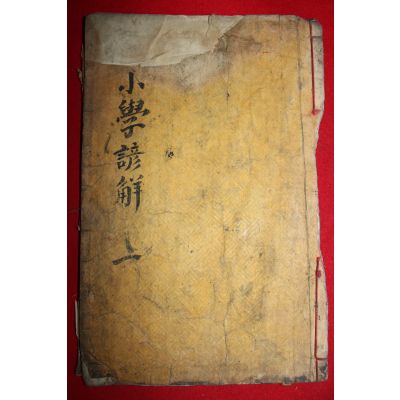 小學諺解 一